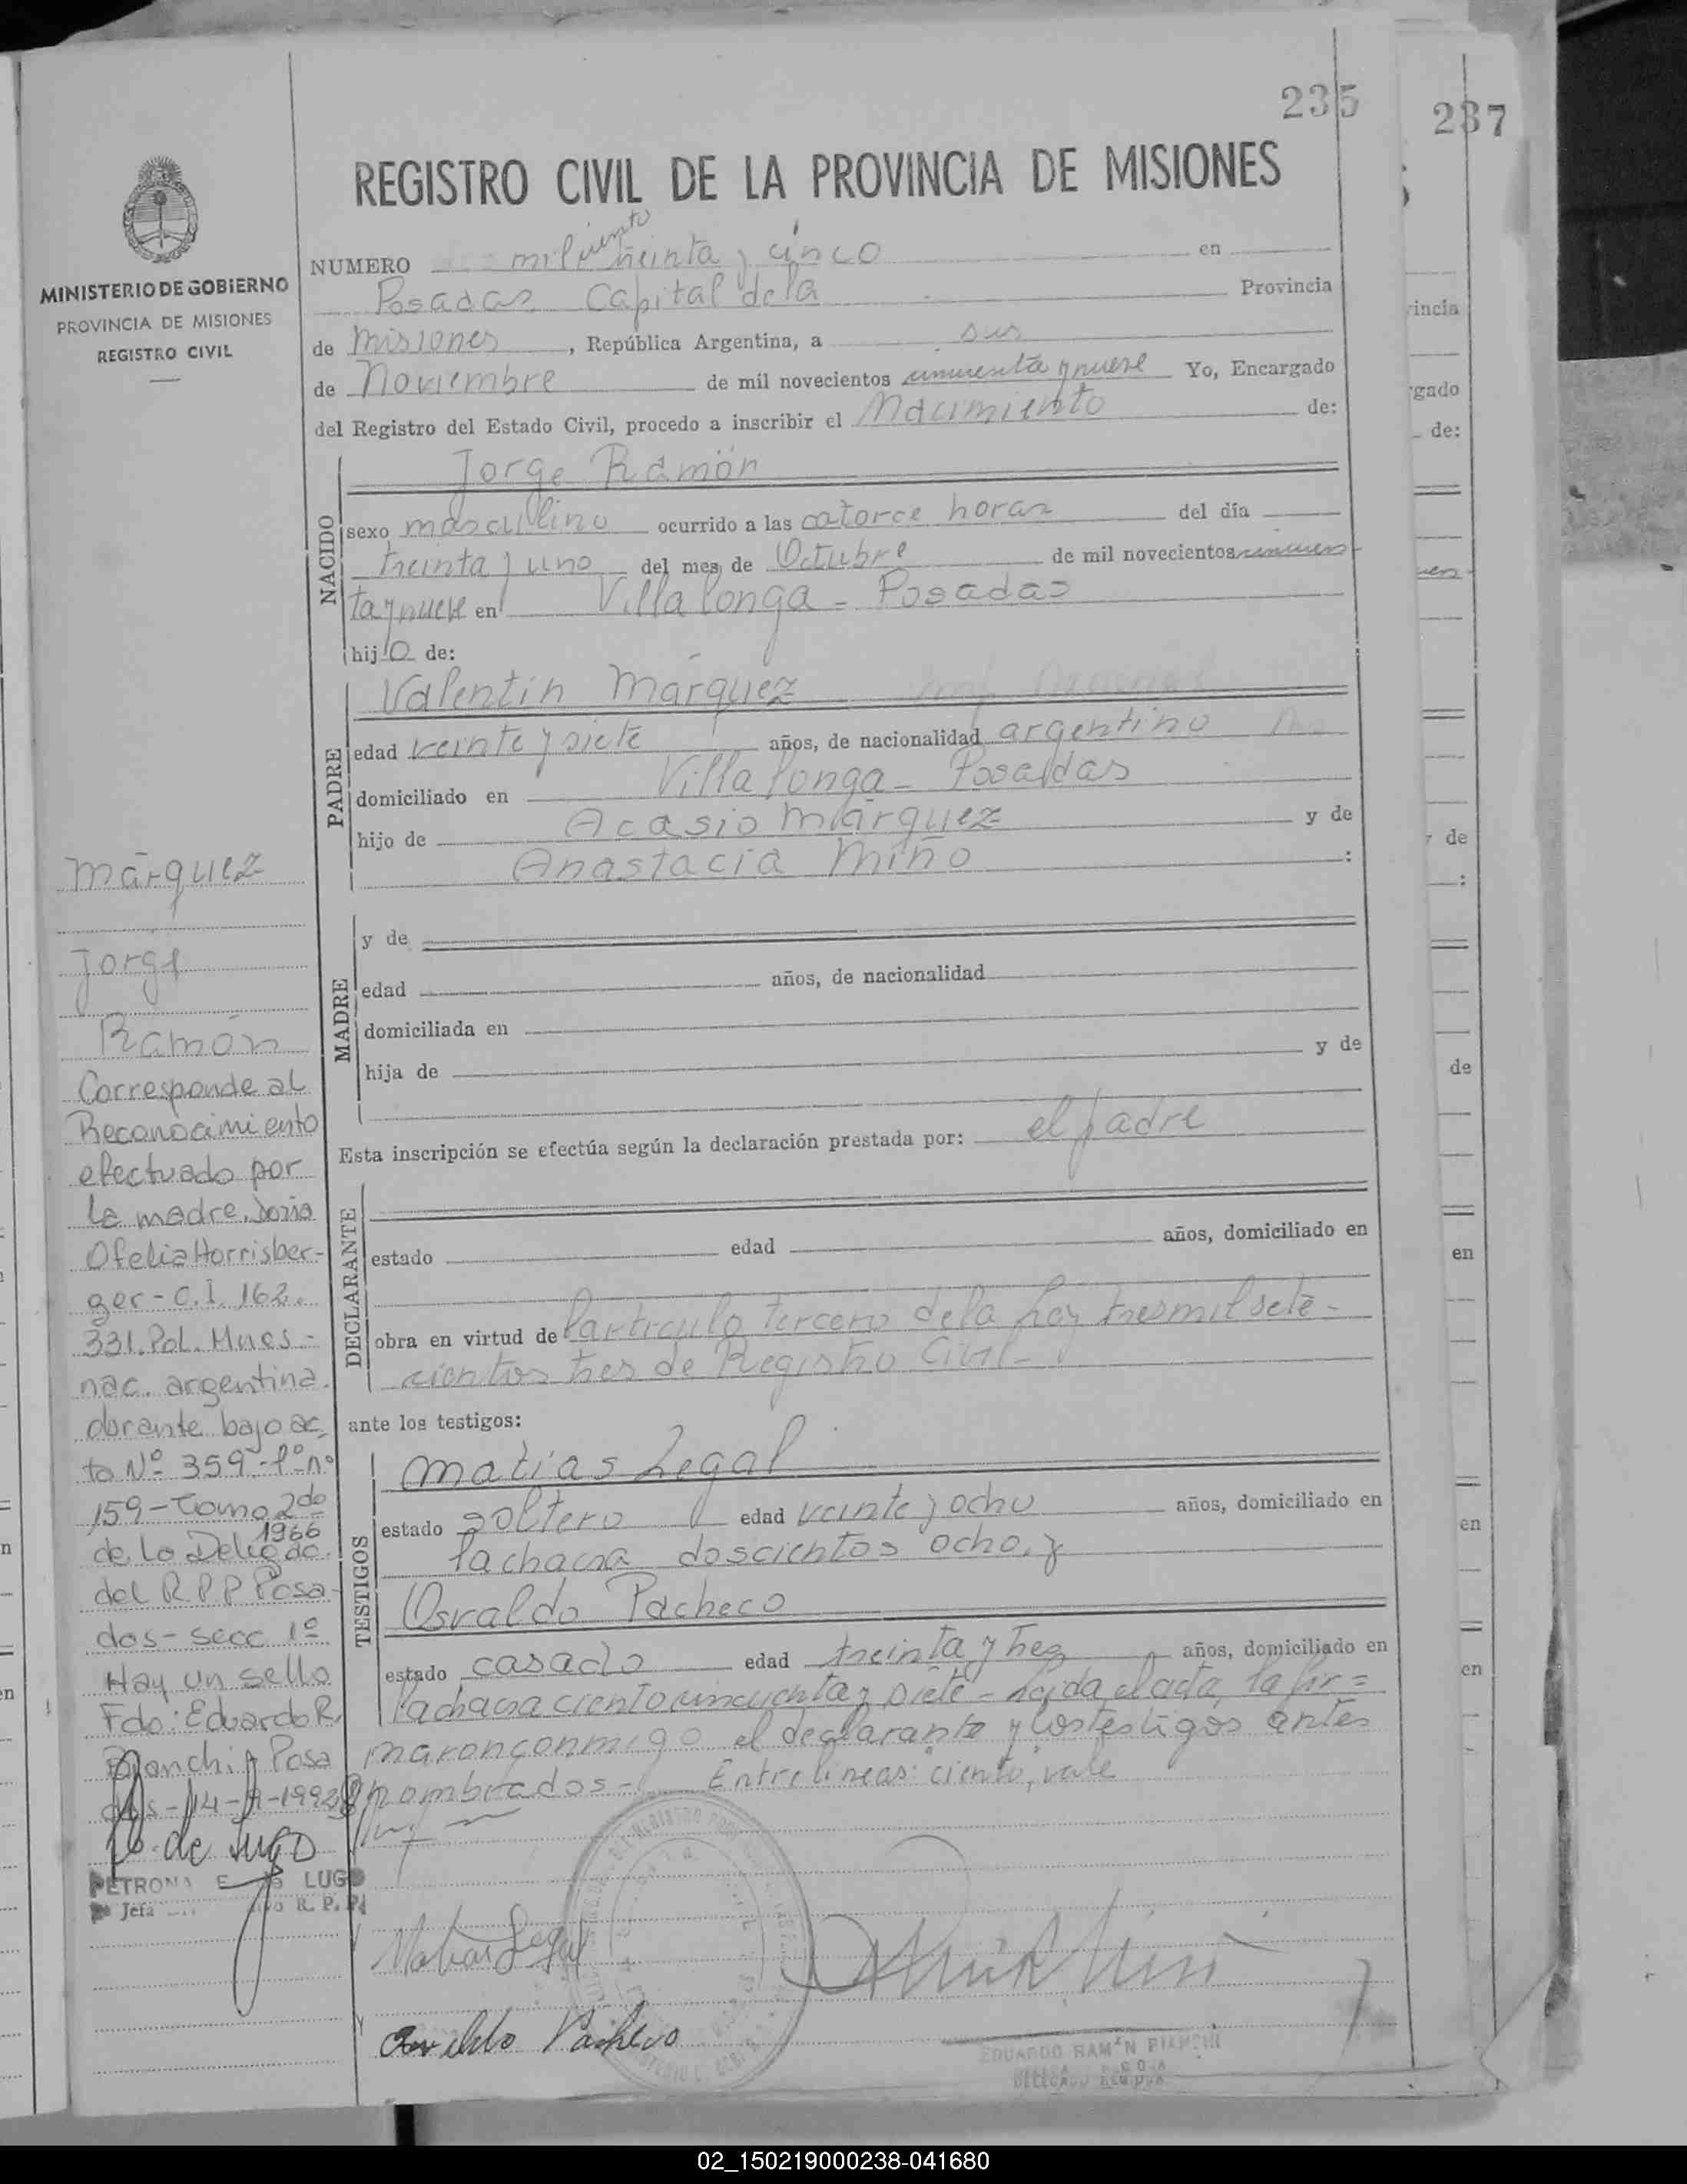 235
237
REGISTRO CIVIL DE LA PROVINCIA DE MISIONES
MINISTERIO DE GOBIERNO
PROVINCIA DE MISIONES
REGISTRO CIVIL
ciento
NUMERO mil treinta y cinco en
Posadas, Capital de la Provincia
de Misiones, República Argentina, a
de Noviembre de mil novecientos cincuenta y nueve Yo, Encargado
del Registro del Estado Civil, procedo a inscribir el Nacimiento de:
NACIDO
Jorge Ramón
sexo masculino ocurrido a las catorce horas del día
treinta y uno del mes de Octubre de mil novecientos cincuen
ta y nueve en Villa longa - Posadas
hijo de:
PADRE
Valentín Márquez
edad veinte y siete años, de nacionalidad argentino
domiciliado en Villa longa - Posadas
hijo de Acasio Márquez y de
Anastacia Miño :
MADRE
y de
edad años, de nacionalidad
domiciliada en
hija de y de
Esta inscripción se efectúa según la declaración prestada por: el padre
DECLARANTE
estado edad años, domiciliado en
obra en virtud de l'artículo tercero de la Ley tresmil sete-
cientos tres de Registro Civil-
ante los testigos:
TESTIGOS
Matias Legal
estado soltero edad veinte y ocho años, domiciliado en
la chacra doscientos ocho, y
Osvaldo Pacheco
estado casado edad treinta y tres años, domiciliado en
la chacra ciento cincuenta y siete - Leida el acta, la fir=
maron conmigo el declarante y los testigos antes
nombrados- Entre lineas: ciento, vale
Márquez
Jorge
Ramón
Corresponde al
Reconocimiento
efectuado por
la madre, Doña
Ofelia Horrisber-
ger - C.I. 162.
331. Pol. Mnes-
nac. argentina.
obrante bajo ac
ta Nº 359 - fº nº
159 - Tomo 2do
1966
de la Delegac.
del R.P.P Posa-
das - secc 1º
Hay un sello
Fdo: Eduardo R.
Bianchi Posa
das - 14-
de Lugo
PETRONA E LUGO
Jefa R. P. P.
Matias Legal
Osvaldo Pacheco
EDUARDO RAMON BIANCHI
rincia
rgado
de:
y de
:
de
en
en
en
02_150219000238-041680